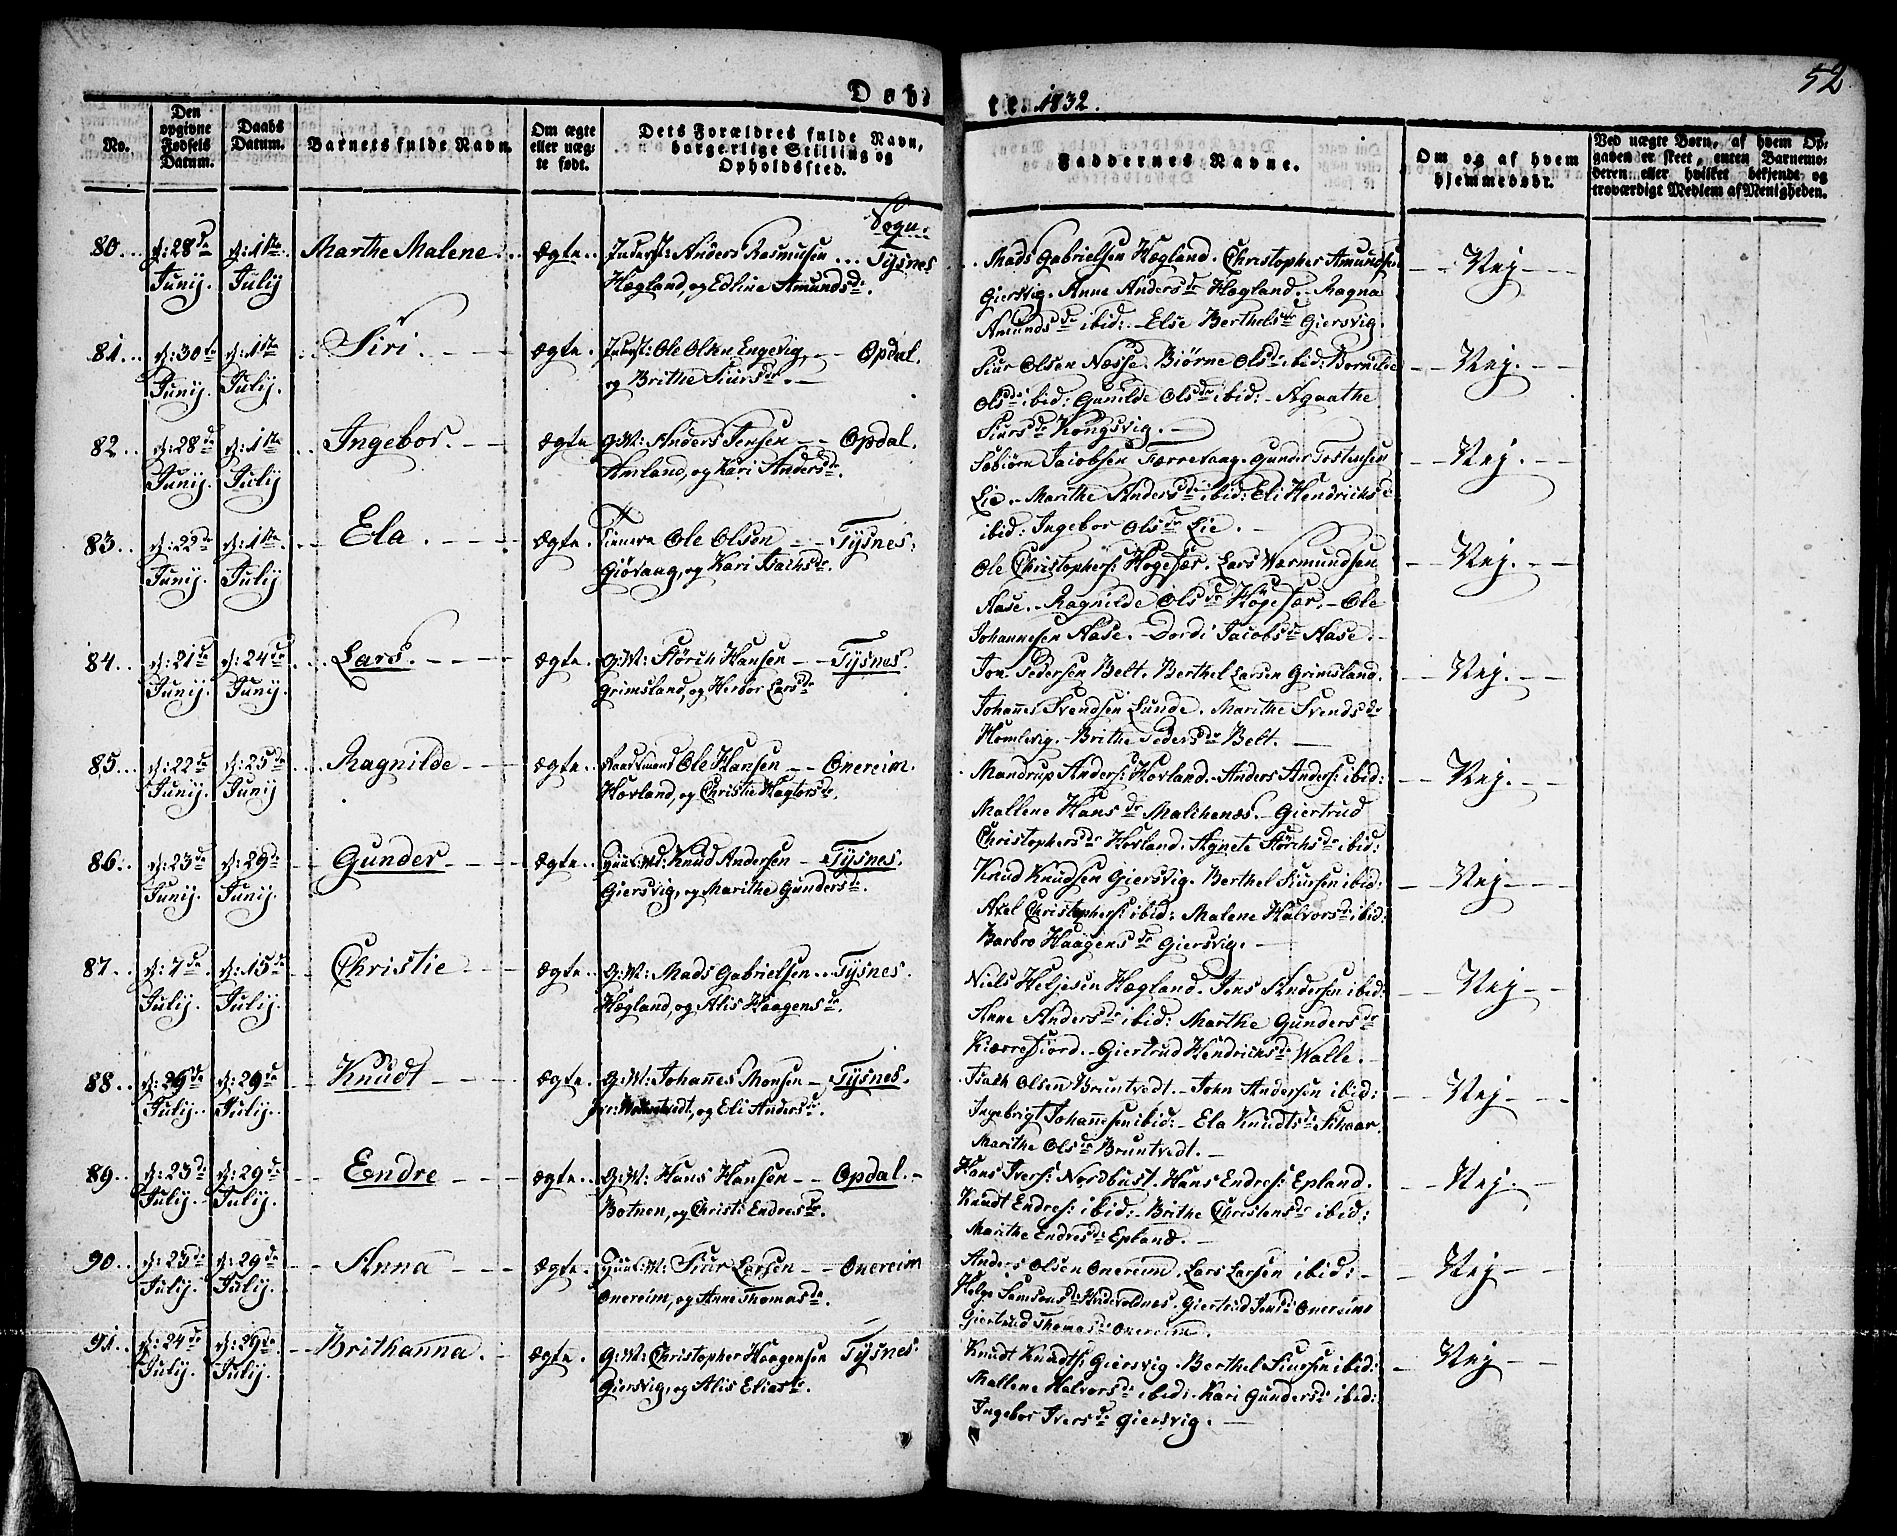 52
Døbte. 1832.
No.
Den opgivne Fødsels Datum.
Daabs Datum.
Barnets fulde Navn.
Om ægte eller uægte født.
Dets Forældres fulde Navn, borgerlige Stilling og Opholdssted.
Faddernes Navne.
Om og af hvem hjemmedøbt.
Ved uægte Børn, af hvem Opgaven er skeet, enten Barnemoderen eller hvilket bekjendt og troværdigt Medlem af Menigheden.
Sogn.
80. d: 28de d: 1ste Marthe Malene. ægte. Inderst: Anders Rasmusen Tysnes Mads Gabrielsen Hægland. Christopher Amundsen Nej
Junij. Julij Hægland, og Edline Amundsdr. Giersvig. Anne Andersdr Hægland. Magna
Amundsdr ibid: Else Berthelsdr Giersvig.
81. d: 30te d: 1ste Siri. ægte. Inderst: Ole Olsen Engevig, Opdal. Siur Olsen Næsse. Biørne Olsdr ibid: Bornilde Nej.
Junij. Julij. og Brithe Siursdr. Olsdr ibid: Gunilde Olsdr ibid: Agaathe
Siursdr Kongsvig.
82. d: 28de d: 1ste Ingebor. ægte G.M: Anders Jensen Opdal. Sæbiørn Jacobsen Færrevaag. Gunder Tostensen Nej.
Junij. Julij Amland, og Kari Andersdr. Lie. Marithe Andersdr ibid: Eli Hendrichsdr
ibid. Ingebor Olsdr Lie.
83. d: 22de d: 1ste Ela. ægte. Tienere Ole Olsen Tysnes: Ole Christophers: Høgesær. Lars Wærmundsen Nej.
Junij. Julij Giøvaag, og Kari Isachsdr. Aase. Ragnilde Olsdr Høgesær. Ole
Johannesen Aase. Dordi Jacobsdr Aase.
84. d: 21de d: 24de Lars. ægte G.M: Størch Hansen Tysnes. Jon Pedersen Belt. Berthel Larsen Grimsland. Nej.
Junij. Junij. Grimsland, og Herbor Larsdr Johannes Svendsen Lunde. Marithe Svendsdr
Humlevig. Brithe Pedersdr Belt.
85. d: 22de d: 25de Ragnilde ægte Huusmand Ole Hansen Onereim. Mandrup Anders: Hovland. Anders Anders: ibid: Nej.
Junij. Junij Hovland, og Christie Hagtorsdr. Mallene Hansdr Malthenæs. Giertrud
Christophersdr Hovland. Agnete Størchsdr ibid:
86. d: 23de d: 29de Gunder ægte Knud Andersen Tysnes. Knud Knudsen Giersvig. Berthel Siursen ibid: Nej
Junij. Junij. Giersvig, og Marithe Gundersdr. Axel Christophers: ibid: Malene Halvorsdr ibid:
Barbro Haagensdr Giersvig.
87. d: 7de d: 15de Christie ægte. G.M: Mads Gabrielsen Tysnes. Niels Heljesen Hægland. Jens Andersen ibid: Nej
Julij. Julij. Hægland, og Alis Haagensdr. Anne Andersdr ibid: Marthe Gundersdr
Kiærrefiord. Giertrud Hendrichsdr Walle.
88. d: 29de d: 29de Knudt ægte. G.M: Johannes Monsen Tysnes. Isach Olsen Bruntvedt. John Andersen ibid: Nej
Julij. Julij. og Eli Andersdr. Ingebrigt Johannesen ibid: Ela Knudtsdr Skaar.
Marithe Olsdr Bruntvedt.
89. d: 23de d: 29de Endre ægte. G.M: Hans Hansen Opdal. Hans Ivers: Nordhust. Hans Endres: Epland. Nej.
Julij. Julij. Botnen, og Christi Endresdr. Knudt Endres: ibid: Brithe Christensdr ibid:
Marithe Endresdr Epland.
90. d: 23de d: 29de Anna ægte. Siur Larsen Onereim Anders Olsen Onereim. Lars Larsen ibid: Nej
Julij. Julij. Onereim, og Anne Thomasdr. Helge Samsonsdr Giertrud Jensdr Onereim
Giertrud Thomasdr Onereim.
91. d: 24de d: 29de Brithanna. ægte. G.M: Christopher Haagensen Tysnes. Knudt Knudts: Giersvig. Berthel Siursen ibid: Nej
Julij. Julij. Giersvig, og Alis Eliasdr. Mallene Halvorsdr ibid: Kari Gundersdr ibid:
Ingebor Iversdr Giersvig.